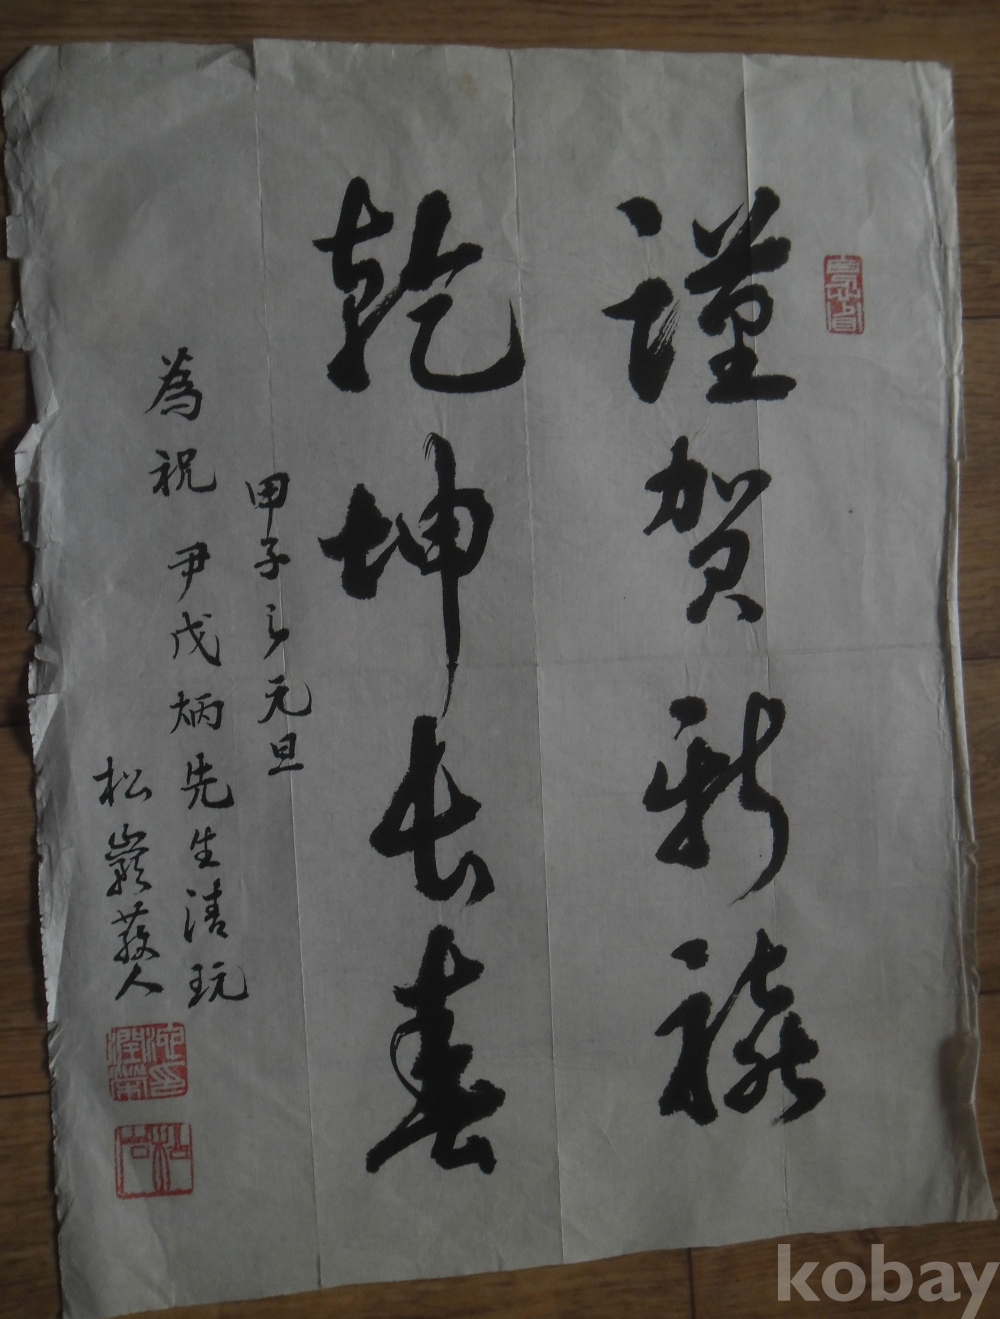 謹賀新禧
乾坤長春
甲子之元旦
為祝 尹戊炳先生清玩
松巖散人
kobay